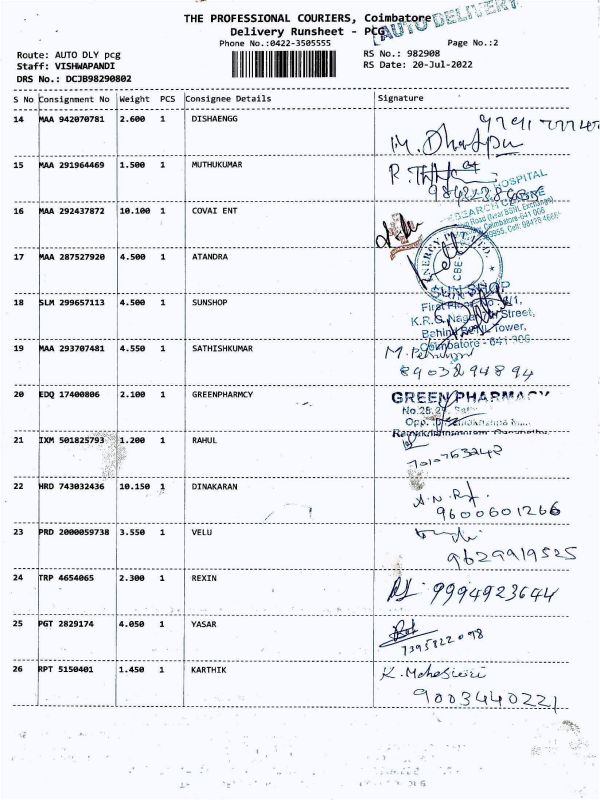 THE PROFESSIONAL COURIERS, Coimbatore
AUTO DELIVERY
Delivery Runsheet - PCG
Phone No.:0422-3505555
Page No.:2
Route: AUTO DLY pcg
RS No.: 982908
Staff: VISHWAPANDI
RS Date: 20-Jul-2022
DRS No.: DCJB98290802
S No Consignment No Weight PCS Consignee Details Signature
14 MAA 942070781 2.600 1 DISHAENGG
15 MAA 291964469 1.500 1 MUTHUKUMAR
HOSPITAL
16 MAA 292437872 10.100 1 COVAI ENT
17 MAA 287527920 4.500 1 ATANDRA
CBE
18 SLM 299657113 4.500 1 SUNSHOP
SUN SHOP
First Floor
Street,
Tower,
Coimbatore - 641 306
19 MAA 293707481 4.550 1 SATHISHKUMAR
89032 94894
20 EDQ 17400806 2.100 1 GREENPHARMCY
GREEN PHARMACY
Opp.
21 IXM 501825793 1.200 1 RAHUL
7010763242
22 HRD 743032436 10.150 1 DINAKARAN
9600601266
23 PRD 2000059738 3.550 1 VELU
9629919525
24 TRP 4654065 2.300 1 REXIN
9994923644
25 PGT 2829174 4.050 1 YASAR
7395822098
26 RPT 5150401 1.450 1 KARTHIK
K. Maheswari
9003440221